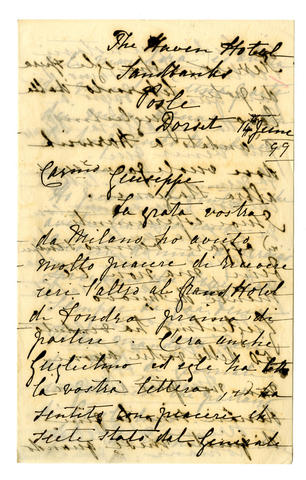 The Haven Hotel
Sandbanks
Poole
Dorset 14 June
99
Carino Giuseppe
La grata vostra
da Milano ho avuto
molto piacere di
l'altro al Grand Hotel
di Londra prima di
partire. C'era anche
Guglielmo ed egli ha letto
la vostra lettera, ed ha
sentito con piacere che
siete stato dal Generale